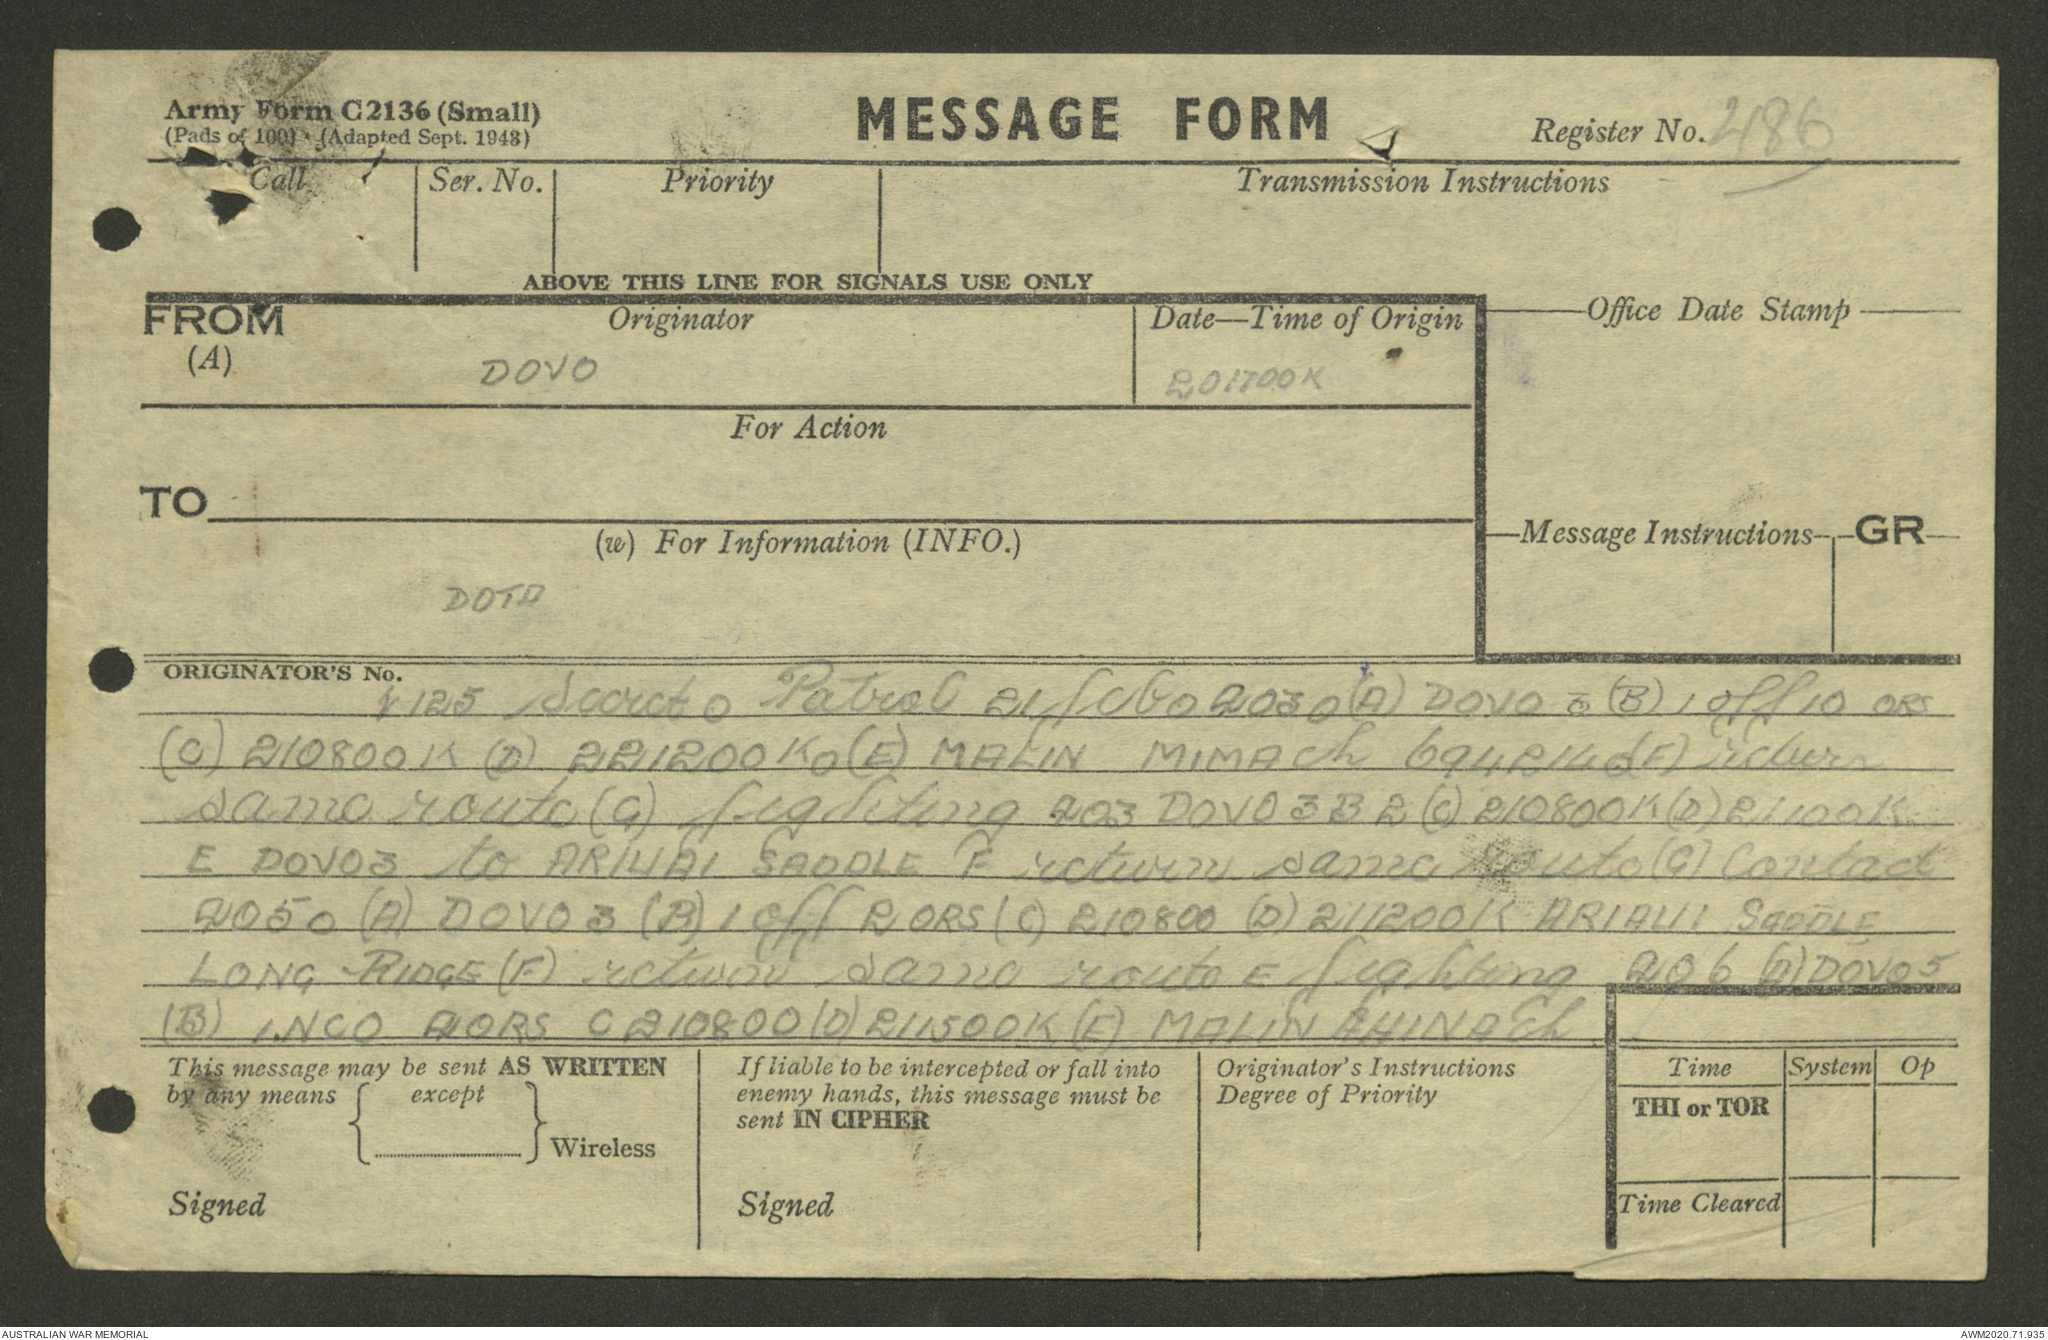 Army Form C2136 (Small)
(Pads of 100) (Adapted Sept. 1943)
MESSAGE FORM
Register No. 486
Call
Ser. No.
Priority
Transmission Instructions
ABOVE THIS LINE FOR SIGNALS USE ONLY
FROM
(A)
Originator
DOVO
Date—Time of Origin
201700K
Office Date Stamp
For Action
TO
(w) For Information (INFO.)
Message Instructions
GR
DOTA
ORIGINATOR'S No.
125 Secret o Patrol 21 feb o 203 o (A) DOVO 3 (B) 1 off 10 ORS
(C) 210800K (D) 221200K o (E) MALIN MIMACh 694214 (F) return
same route (G) fighting 203 DOVO 3 B 2 (C) 210800K (D) 211100K
E DOVO3 to ARIUAI SADDLE F return same route (G) Contact
205 o (A) DOVO 3 (B) 1 off 2 ORS (C) 210800 (D) 211200K ARIAUI SADDLE
LONG RIDGE (F) return same route E fighting 206 (A) DOVO 5
(B) 1.NCO 2ORS C 210800 (D) 211500K (E) MALIN
This message may be sent AS WRITTEN
by any means except
Wireless
Signed
If liable to be intercepted or fall into
enemy hands, this message must be
sent IN CIPHER
Signed
Originator's Instructions
Degree of Priority
Time
System
Op
THI or TOR
Time Cleared
AUSTRALIAN WAR MEMORIAL
AWM2020.71.935